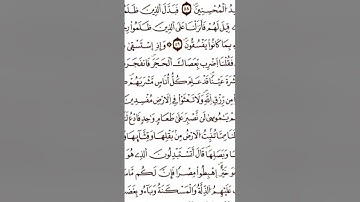 ٱلْمُحْسِنِينَ فَبَدَّلَ ٱلَّذِينَ ظَلَمُـ
قِيلَ لَهُمْ فَأَنزَلْنَا عَلَى ٱلَّذِينَ ظَلَمُوا۟
بِمَا كَانُوا۟ يَفْسُقُونَ وَإِذِ ٱسْتَسْقَىٰ
فَقُلْنَا ٱضْرِب بِّعَصَاكَ ٱلْحَجَرَ فَٱنفَجَرَ
ـشْرَةَ عَيْنًا قَدْ عَلِمَ كُلُّ أُنَاسٍ مَّشْرَبَهُمْ
مِن رِّزْقِ ٱللَّهِ وَلَا تَعْثَوْا۟ فِى ٱلْأَرْضِ مُفْسِدِينَ
يَٰمُوسَىٰ لَن نَّصْبِرَ عَلَىٰ طَعَامٍ وَٰحِدٍ فَٱدْعُ
لَنَا مِمَّا تُنۢبِتُ ٱلْأَرْضُ مِنۢ بَقْلِهَا وَقِثَّآئِهَا
وَبَصَلِهَا قَالَ أَتَسْتَبْدِلُونَ ٱلَّذِى هُوَ
خَيْرٌ ٱهْبِطُوا۟ مِصْرًا فَإِنَّ لَكُم مَّا
عَلَيْهِمُ ٱلذِّلَّةُ وَٱلْمَسْكَنَةُ وَبَآءُو بِغَضَـ